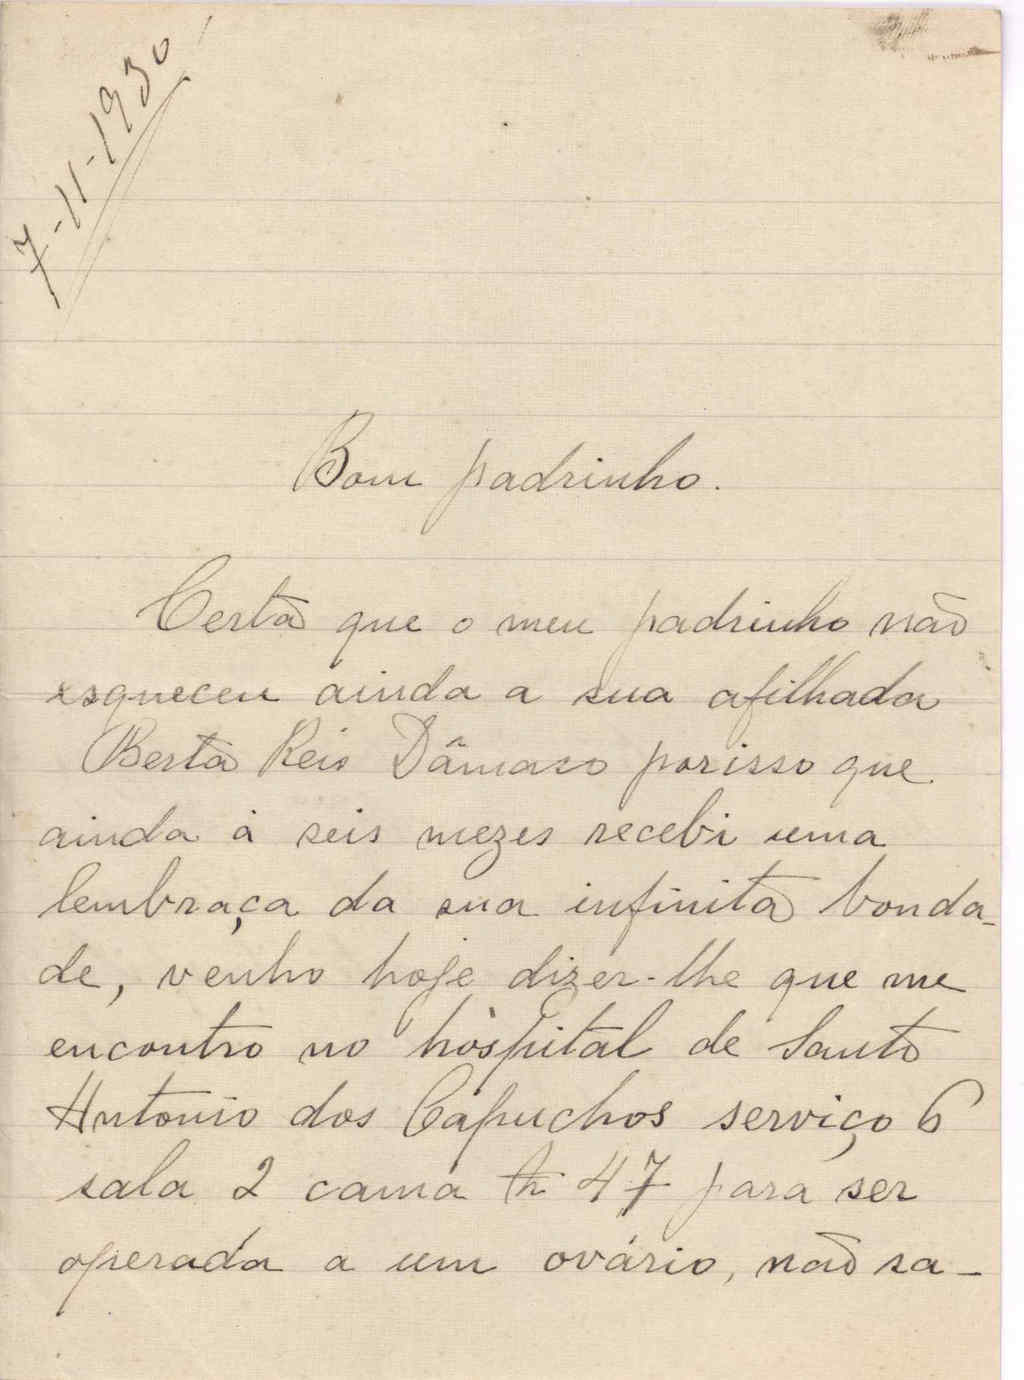 7-11-1930
Bom padrinho.
Certa que o meu padrinho não
esqueceu ainda a sua afilhada
Berta Reis Dâmaso porisso que
ainda á seis mezes recebi uma
lembraça da sua infinita bonda-
de, venho hoje dizer-lhe que me
encontro no hòspital de Santo
Antonio dos Capuchos serviço 6
sala 2 cama 47 para ser
operada a um ovário, não sa-